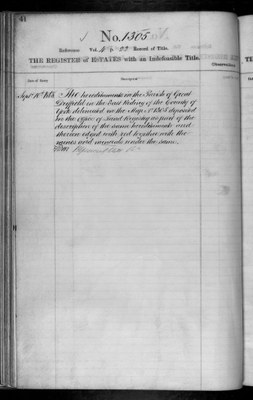 61
No. 1305
Reference Vol. 4 Record of Title.
THE REGISTER of ESTATES with an Indefeasible Title.
Date of Entry Description Observations
Sept 10th 1868 The hereditaments in the Parish of Great
Driffield in the East Riding of the County of
York delineated in the Map No 1305 deposited
in the office of Land Registry as part of the
description of the same hereditaments and
therein edged with red together with the
mines and minerals under the same.